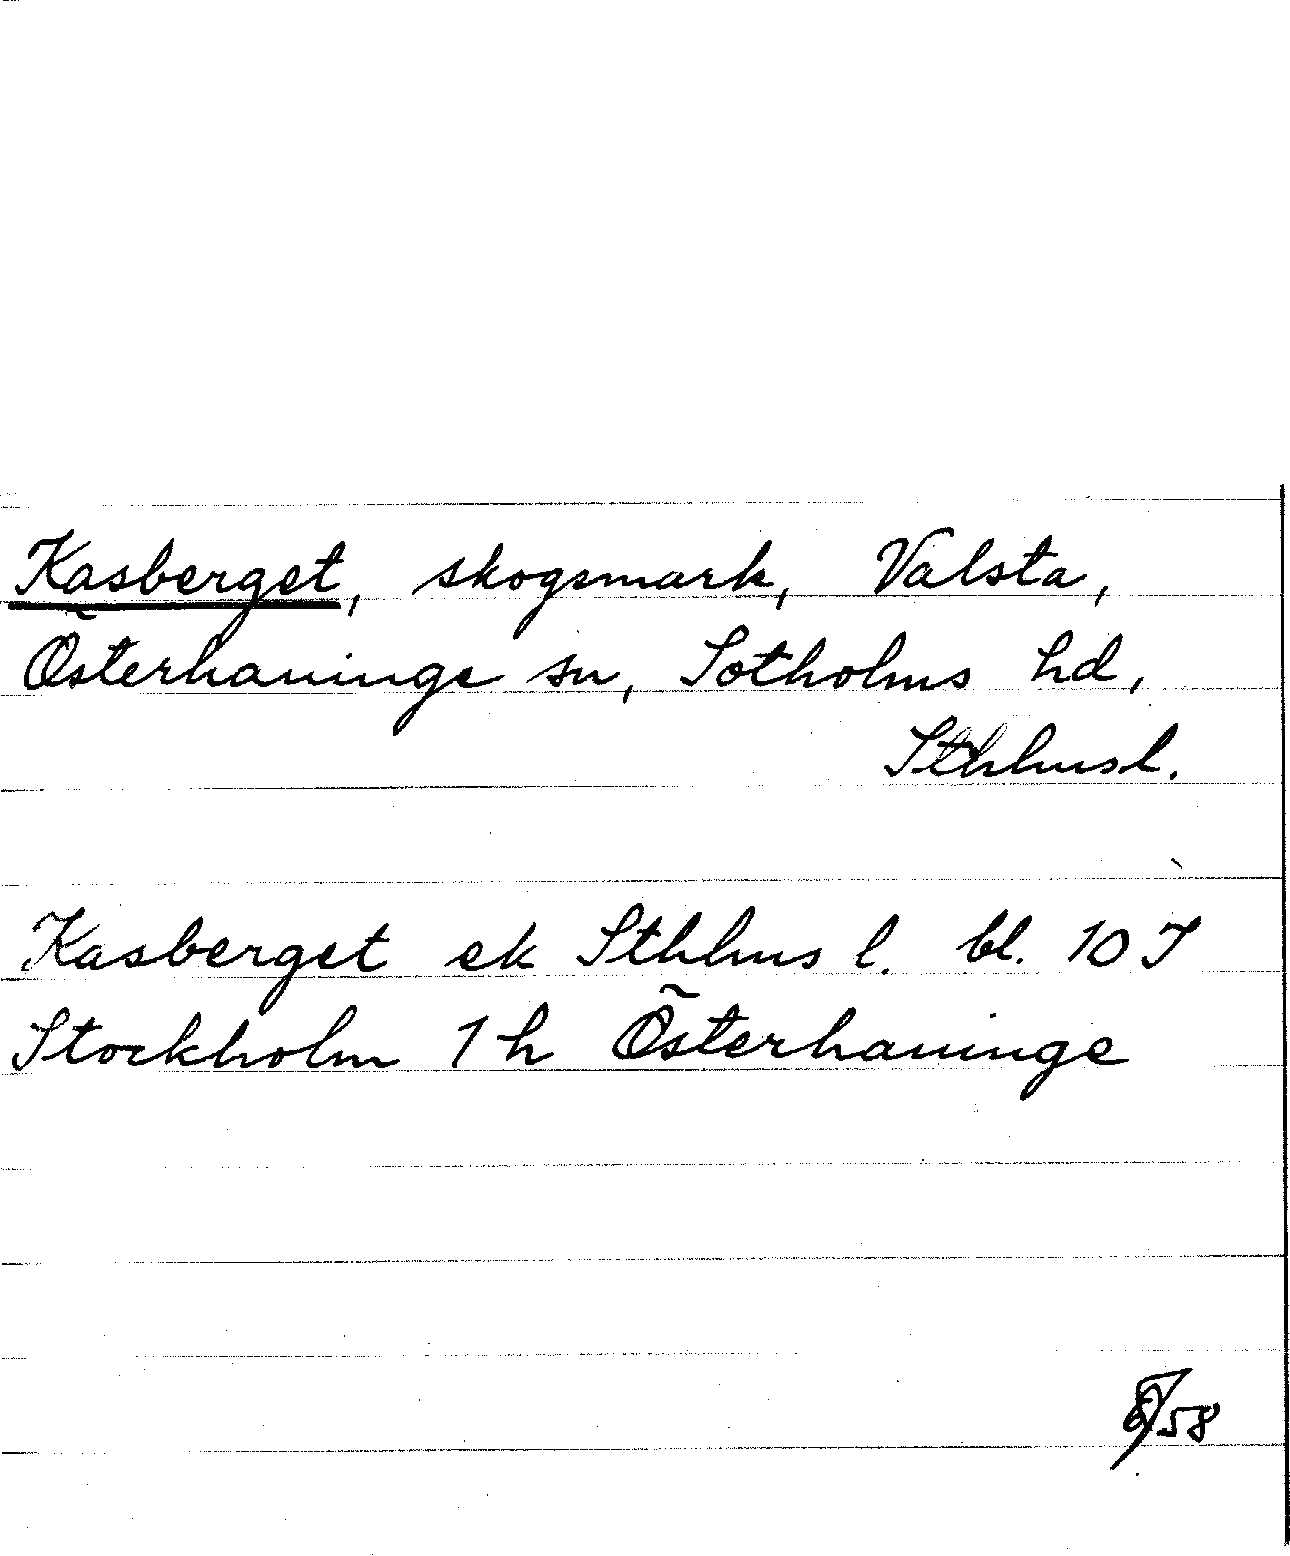 Kasberget, skogsmark, Valsta,
Österhaninge sn, Sotholms hd,
Sthlmsl.
Kasberget ek Sthlms l. bl. 10 I
Stockholm 1 h Österhaninge
58